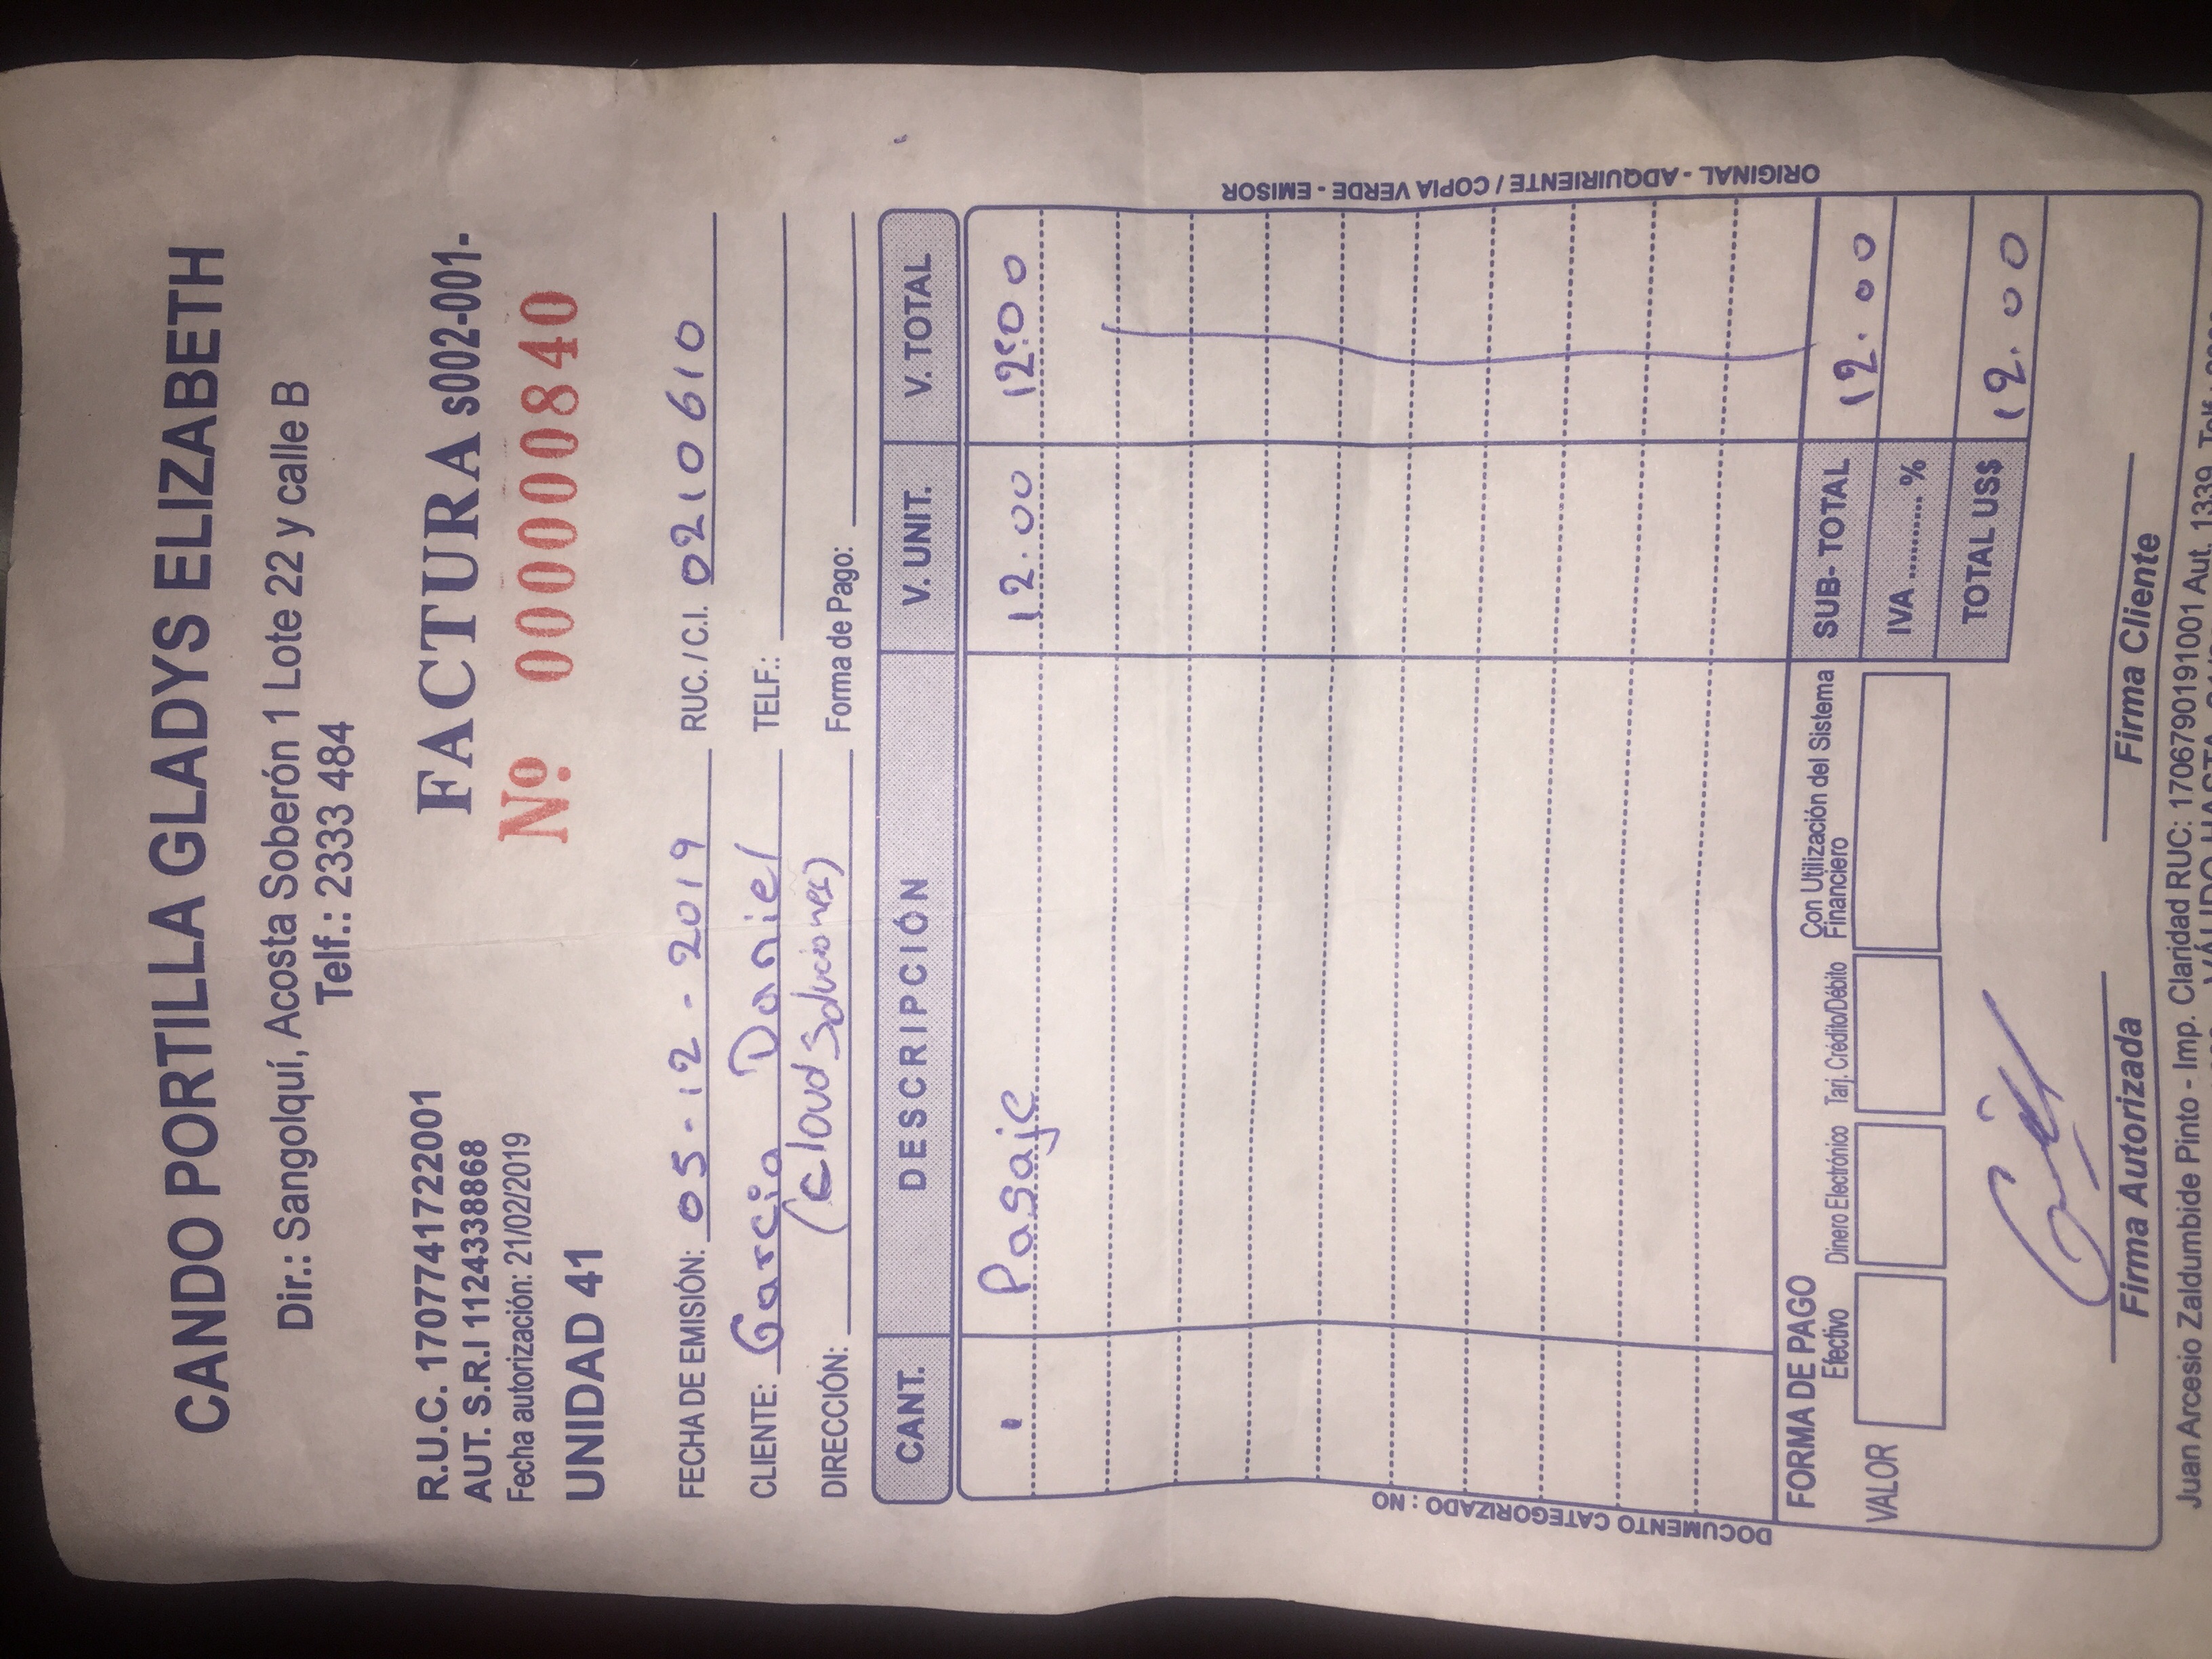 CANDO PORTILLA GLADYS ELIZABETH
Dir.: Sangolquí, Acosta Soberón 1 Lote 22 y calle B
Telf.: 2333 484
R.U.C. 1707741722001
AUT. S.R.I 1124338868
Fecha autorización: 21/02/2019
UNIDAD 41
FACTURA s002-001-
Nº 000000840
FECHA DE EMISIÓN: 05-12-2019 RUC. / C.I. 0210610
CLIENTE: Garcia Daniel TELF.:
DIRECCIÓN: (Cloud Soluciones) Forma de Pago:
CANT. DESCRIPCIÓN V. UNIT. V. TOTAL
1 Pasaje 12.00 12.00
DOCUMENTO CATEGORIZADO : NO
ORIGINAL - ADQUIRIENTE / COPIA VERDE - EMISOR
FORMA DE PAGO
Efectivo Dinero Electrónico Tarj. Crédito/Débito Con Utilización del Sistema Financiero
VALOR
SUB- TOTAL 12.00
IVA .......... %
TOTAL US$ 12.00
Firma Autorizada Firma Cliente
Juan Arcesio Zaldumbide Pinto - Imp. Claridad RUC: 1706790191001 Aut. 1339 Telf.:
VÁLIDO HASTA